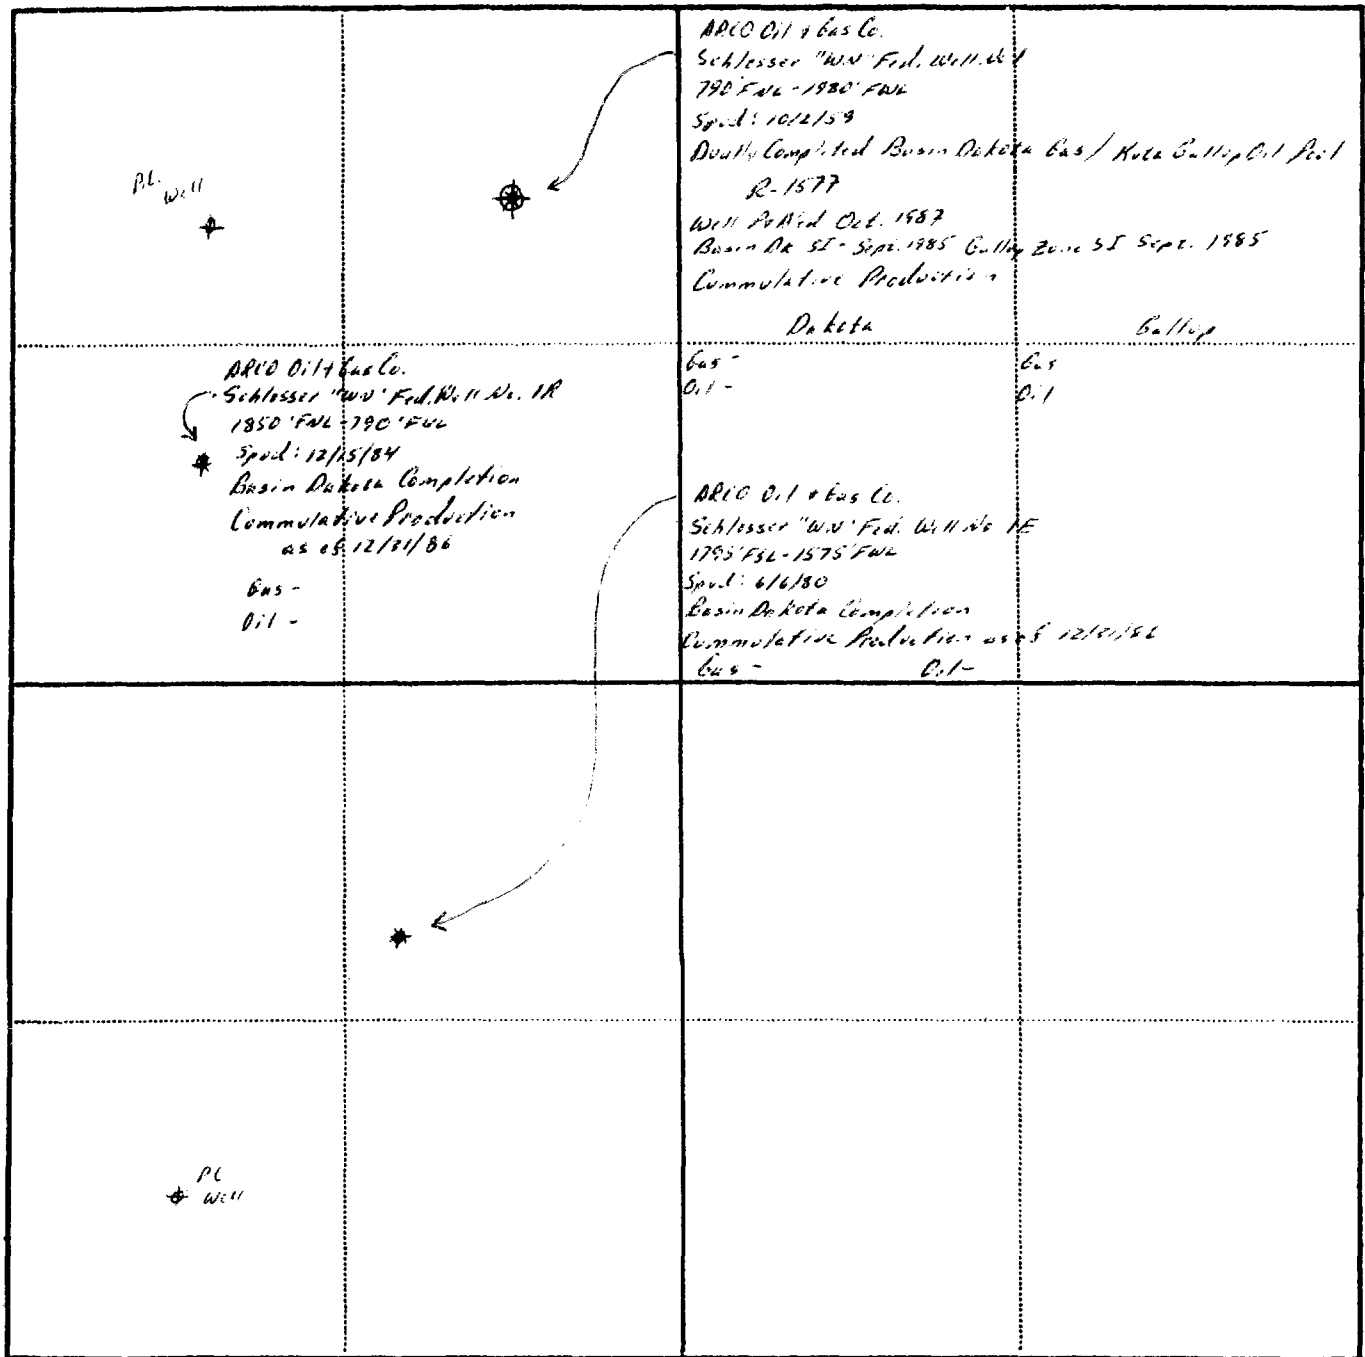 ARCO Oil & Gas Co.
Schlosser "WN" Fed. Well No 1
790' FNL - 1980' FWL
Spud: 10/2/59
Dually Completed Basin Dakota Gas / Kutz Gallup Oil Pool
R-1577
Well P&A'd Oct. 1987
Basin Dk SI - Sept. 1985 Gallup Zone SI Sept. 1985
Commulative Production
Dakota Gallup
Gas - Gas
Oil - Oil
PC Well
ARCO Oil + Gas Co.
Schlosser "WN" Fed. Well No. 1R
1850' FNL - 790' FWL
Spud: 12/15/84
Basin Dakota Completion
Commulative Production
as of 12/31/86
Gas -
Oil -
ARCO Oil & Gas Co.
Schlosser "WN" Fed. Well No 1E
1795' FSL - 1575' FWL
Spud: 6/6/80
Basin Dakota Completion
Commulative Production as of 12/31/86
Gas - Oil -
PC
Well